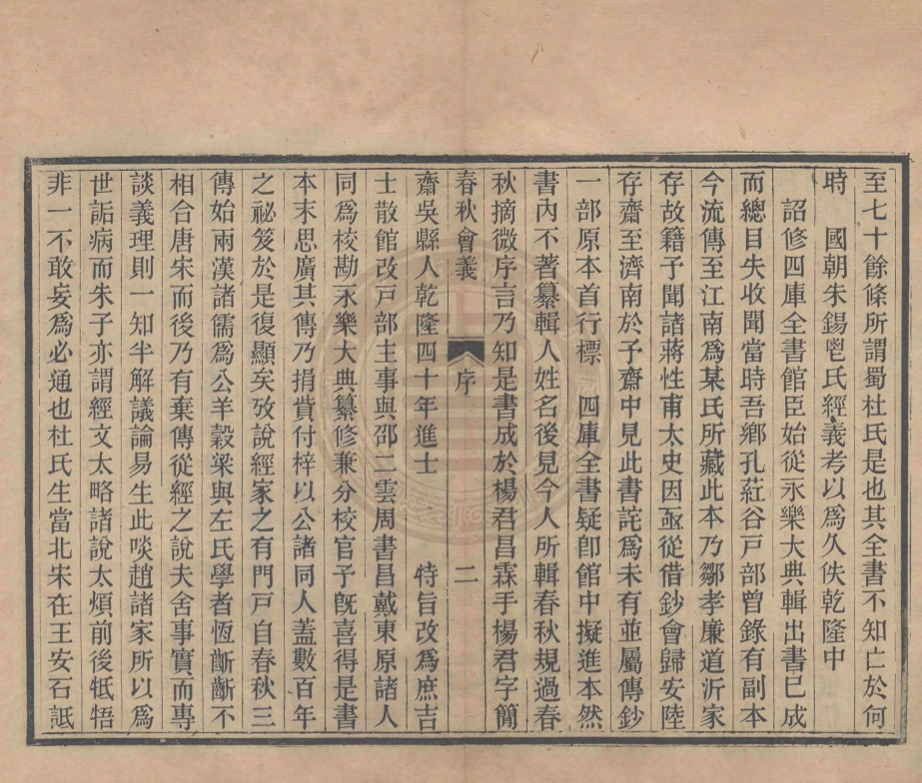 至七十餘條所謂蜀杜氏是也其全書不知亡於何
時　國朝朱錫鬯氏經義考以爲久佚乾隆中
詔修四庫全書館臣始從永樂大典輯出書巳成
而總目失收聞當時吾鄉孔葒谷戸部曾錄有副本
今流傳至江南爲某氏所藏此本乃鄒孝廉道沂家
存故籍予聞諸蔣性甫太史因亟從借鈔會歸安陸
存齋至濟南於予齋中見此書詫爲未有並屬傳鈔
一部原本首行標　四庫全書疑卽館中擬進本然
書內不著纂輯人姓名後見今人所輯春秋規過春
秋摘微序言乃知是書成於楊君昌霖手楊君字簡
春秋會義　序　二
齋吳縣人乾隆四十年進士　特旨改爲庶吉
士散館改戸部主事與邵二雲周書昌戴東原諸人
同爲校勘永樂大典纂修兼分校官予旣喜得是書
本末思廣其傳乃捐貲付梓以公諸同人蓋數百年
之祕笈於是復顯矣攷說經家之有門戸自春秋三
傳始兩漢諸儒爲公羊穀梁與左氏學者恆齗齗不
相合唐宋而後乃有棄傳從經之說夫舍事實而專
談義理則一知半解議論易生此啖趙諸家所以爲
世詬病而朱子亦謂經文太略諸說太煩前後牴牾
非一不敢妄爲必通也杜氏生當北宋在王安石詆